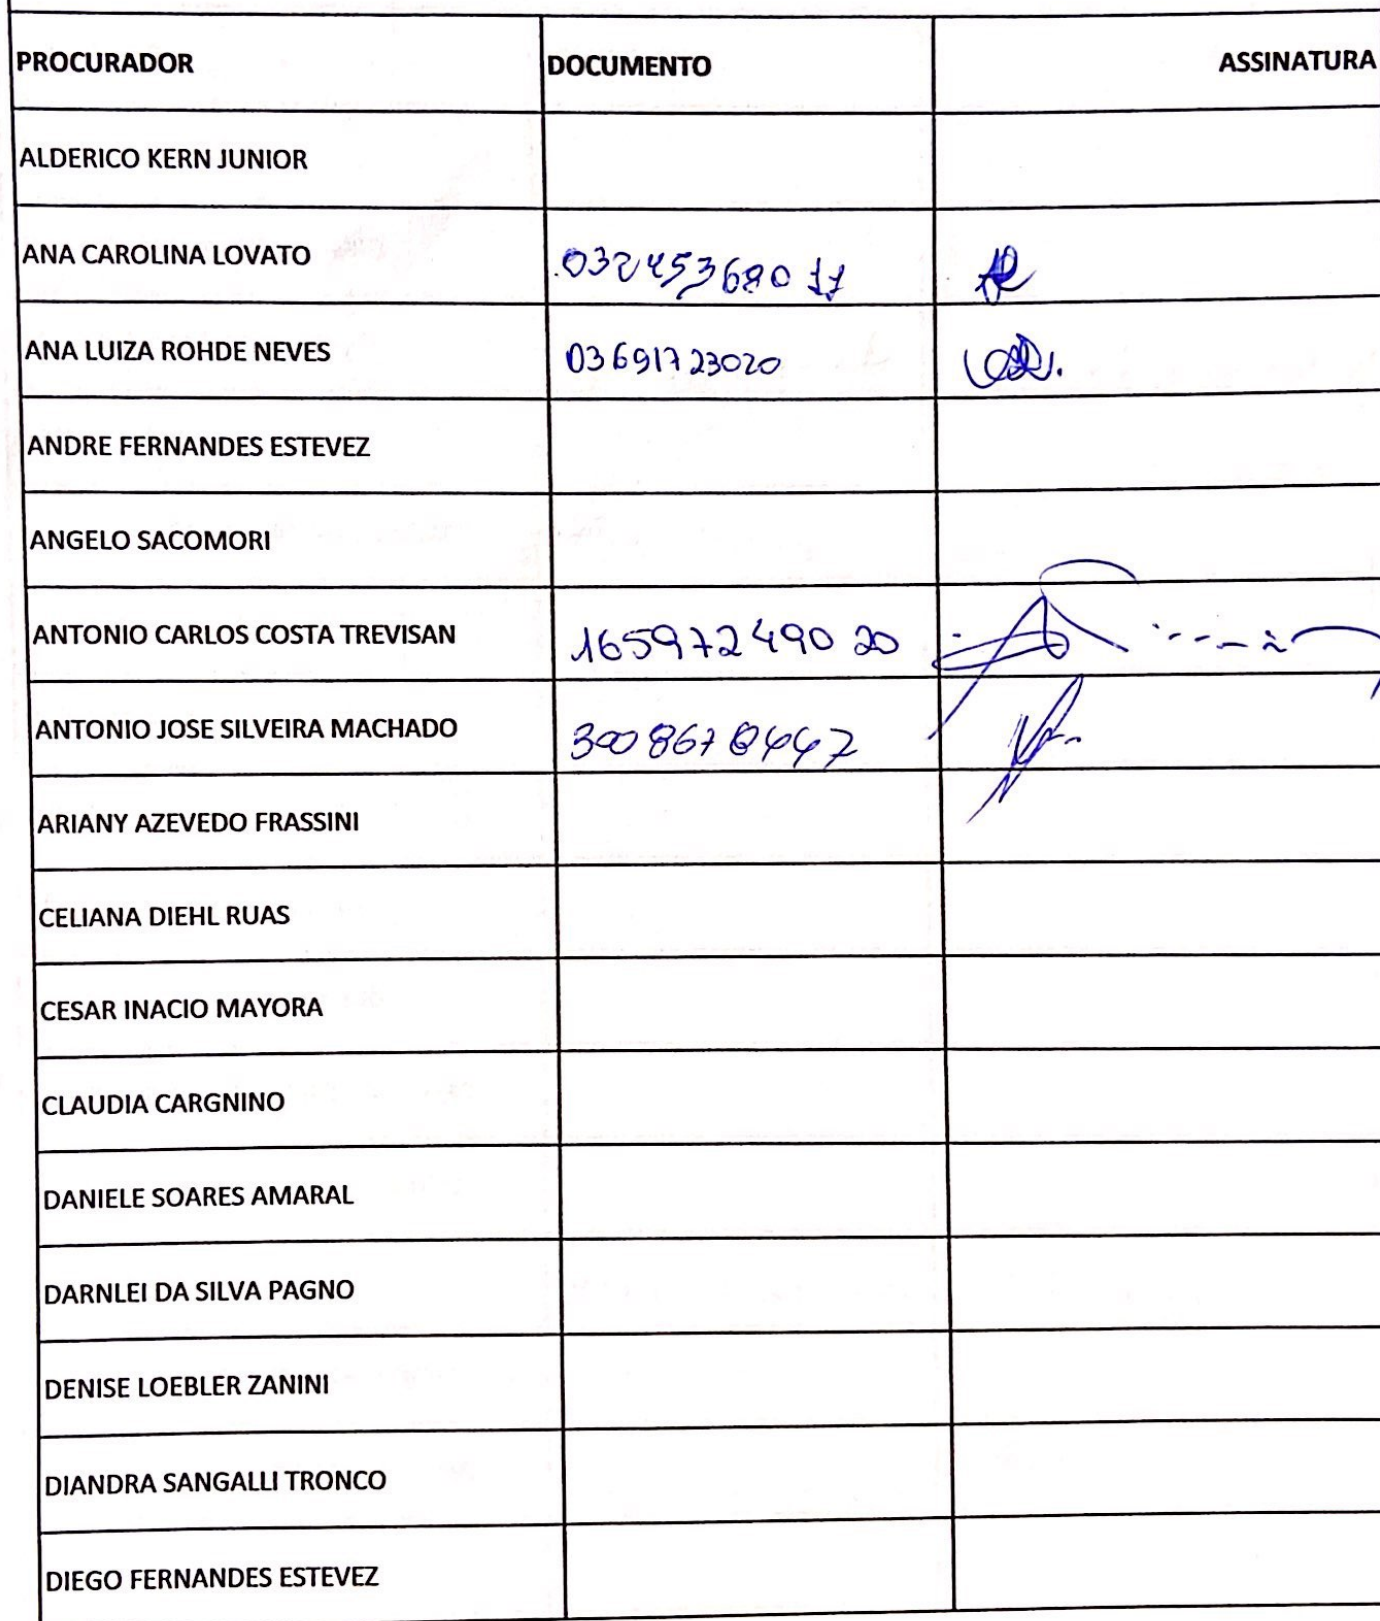 PROCURADOR DOCUMENTO ASSINATURA
ALDERICO KERN JUNIOR
ANA CAROLINA LOVATO 03245368011
ANA LUIZA ROHDE NEVES 03691723020
ANDRE FERNANDES ESTEVEZ
ANGELO SACOMORI
ANTONIO CARLOS COSTA TREVISAN 16597249020
ANTONIO JOSE SILVEIRA MACHADO
ARIANY AZEVEDO FRASSINI
CELIANA DIEHL RUAS
CESAR INACIO MAYORA
CLAUDIA CARGNINO
DANIELE SOARES AMARAL
DARNLEI DA SILVA PAGNO
DENISE LOEBLER ZANINI
DIANDRA SANGALLI TRONCO
DIEGO FERNANDES ESTEVEZ